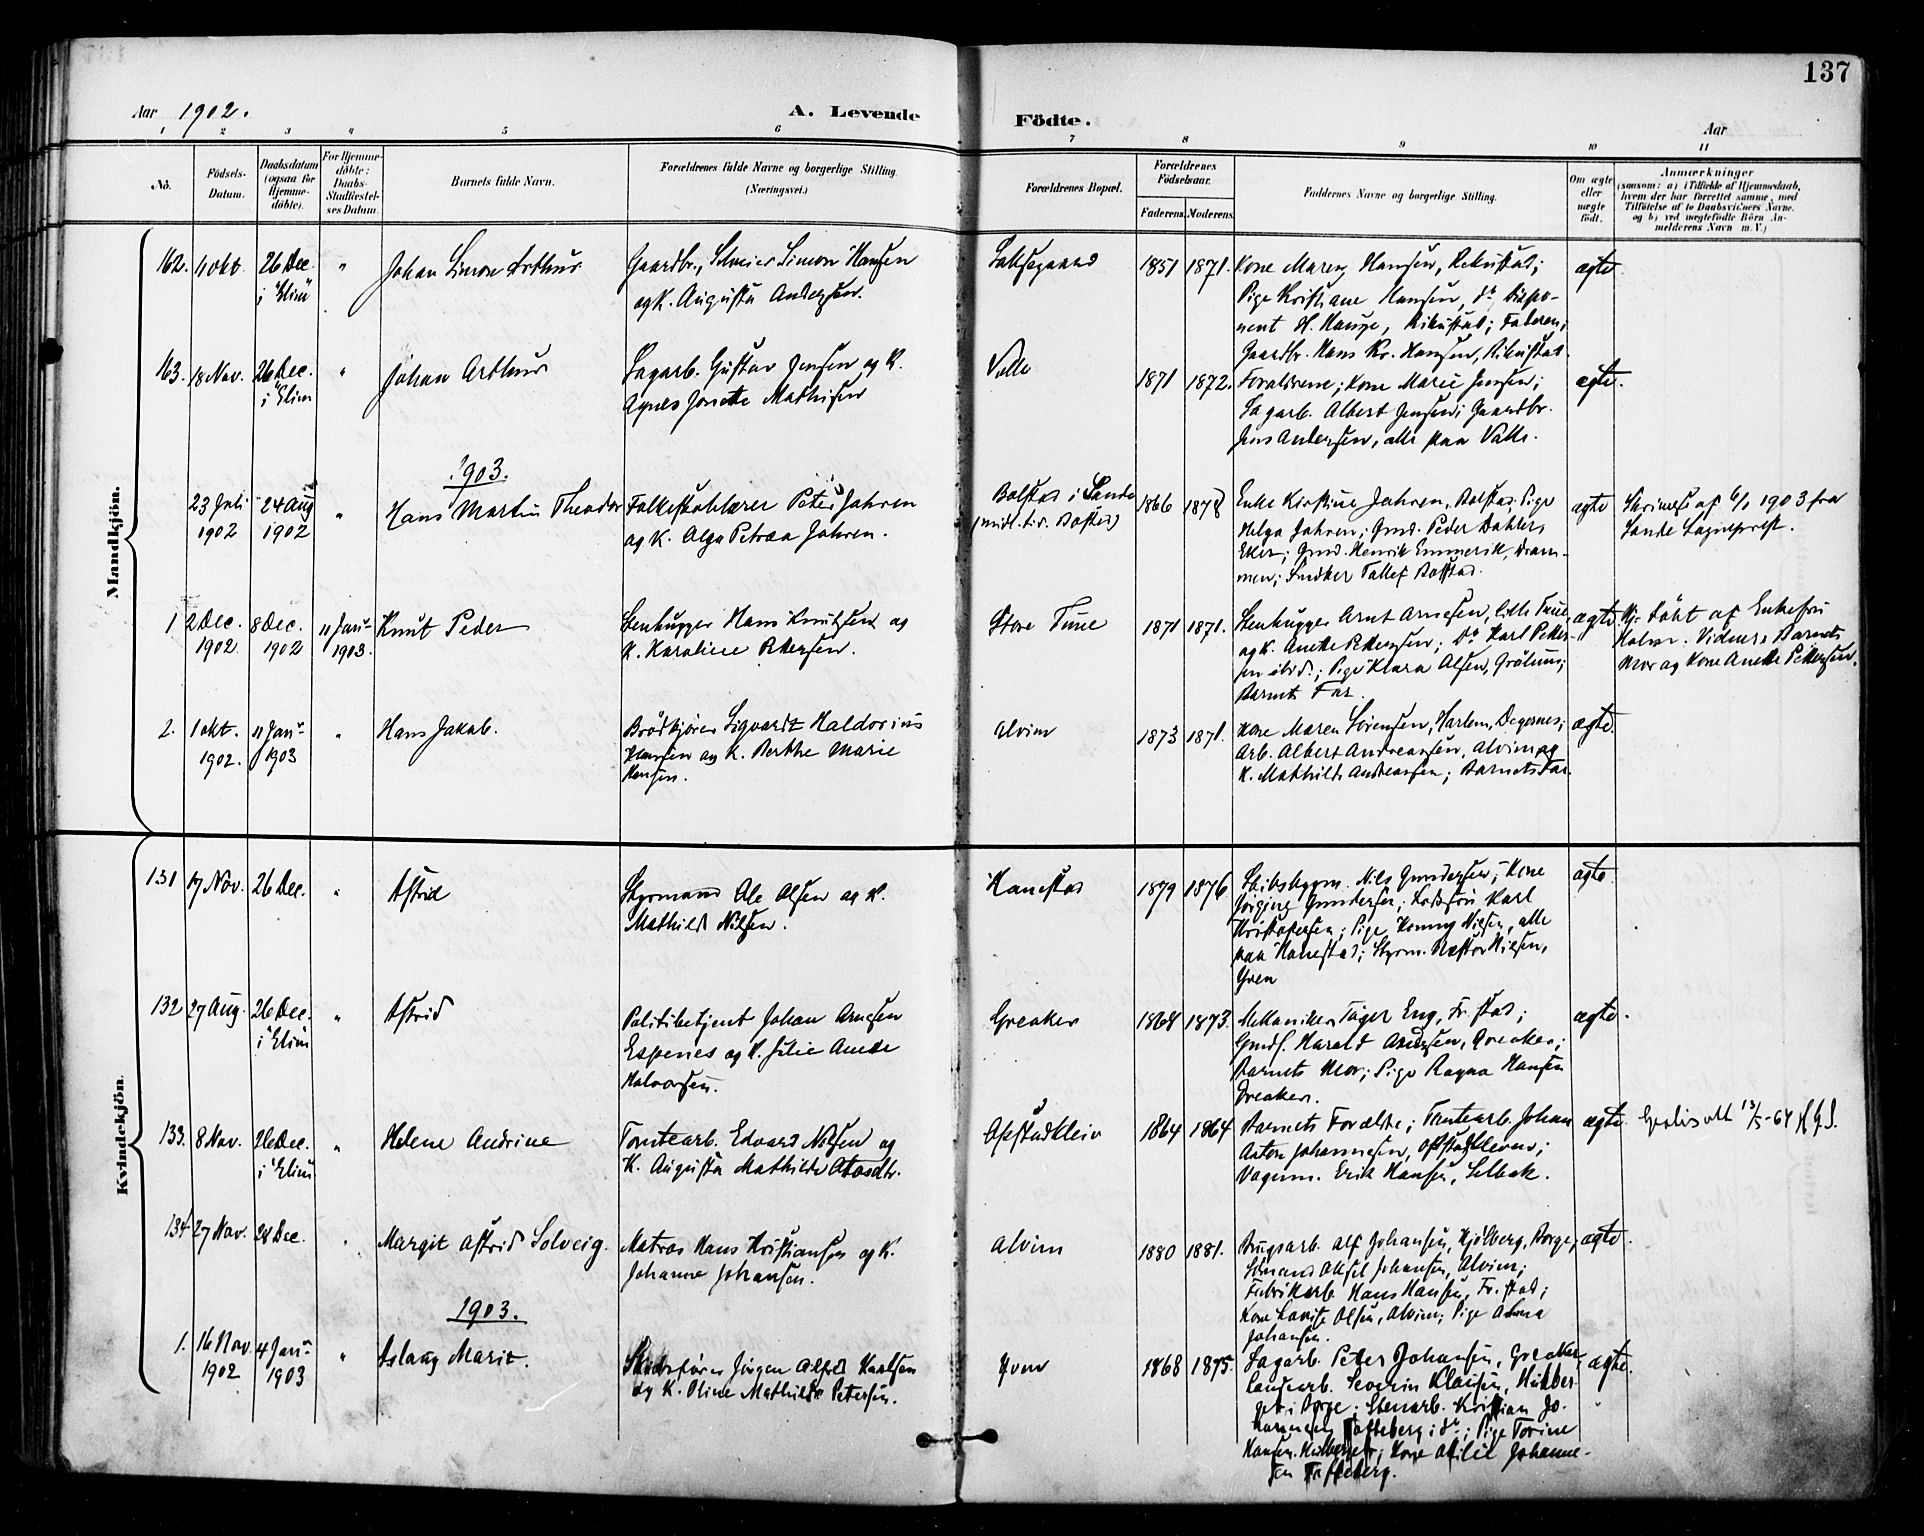 137
Aar 1902.
A. Levende Födte.
Aar
1 2 3 4 5 6 7 8 9 10 11
No.
Födsels-
Datum.
Daabsdatum
(ogsaa for
Hjemme-
döbte).
For Hjemme-
döbte:
Daabs-
Stadfæstel-
ses Datum.
Barnets fulde Navn.
Forældrenes fulde Navne og borgerlige Stilling.
(Næringsvei.)
Forældrenes Bopæl.
Forældrenes
Födselsaar.
Faderens. Moderens.
Faddernes Navne og borgerlige Stilling.
Om ægte
eller
uægte
födt.
Anmærkninger
(saasom: a) i Tilfælde af Hjemmedaab,
hvem der har forrettet samme, med
Tilföielse af to Daabsvidners Navne.
og b) ved uægtefödte Börn An-
melderens Navn m. V.)
Mandkjön.
162. 11 Okt. 26 Dec. i "Elim" " Johan Simon Arthur
Gaardbr., Simon Hansen
og K. Augusta Andersen.
1851 1871.
Kone Maren Hansen,
Pige Kristiane Hansen, do Dispo-
nent H. Hauge, Faderen;
Gaardbr. Hans Kr. Hansen,
ægte
163. 18 Nov. 26 Dec. i "Elim " Johan Arthur
Sagarb. Gustav Jensen og K.
Agnes Josette Mathisen
Valle
1871 1872.
Forældrene; Kone Marie Jensen;
Sagarb. Albert Jensen; Gaardbr.
Jens Andersen, alle paa Valle.
ægte.
1903.
23 Juli 1902 24 Aug 1902 " Hans Martin Theodor
Folkeskolelærer Peter Jahren
og K. Olga Petrea Jahren.
Bolstad i Sande
1866 1878
Enke Kirstine Jahren, Bolstad; Pige
Helga Jahren; Gmd. Peder Dahler,
Eker; Gmd. Henrik Emmerik, Dram-
men;
ægte
Skrivelse af 6/1 1903 fra
Sande Sogneprest.
1 2 Dec. 1902. 8 Dec. 1902 11 Janr 1903. Knut Peder
Stenhugger Hans Knutsen og
K. Karoline Pettersen.
Store Tune
1871 1871.
Stenhugger Arnt Arnesen, Lille Tune
og K. Anette Pettersen; Do Karl Petter-
sen ibid.; Pige Klara Olsen, Grålum;
Barnets Far.
ægte.
Hj. döbt af Enkefru
Holm. Vidner: Barnets
Mor og Kone Anette Pettersen.
2. 1 Okt. 1902. 11 Janr 1903 " Hans Jakob.
Brödkjörer Sigvardt Haldorius
Hansen og K. Berthe Marie
Hansen.
Alvim
1873 1871.
Kone Maren Sörensen, Harlem, Degernes;
Arb. Albert Andreassen, Alvim og
K. Mathilde Andreassen; Barnets Far.
ægte.
Kvindekjön.
131 17 Nov. 26 Dec. " Astrid
Styrmand Ole Olsen og K.
Mathilde Nilsen.
Hanestad
1879 1876
Skibsbygm. Nils Gundersen; Kone
Gundersen; Karl
Kristofersen; Pige Nilsen, alle
paa Hanestad; Styrm. Nilsen,
Gren
ægte.
132 27 Aug. 26 Dec. i "Elim " Astrid
Politibetjent Johan Arnesen
Espenes og K. Julie Anette
Halvorsen.
Greaker
1868 1873.
Mekaniker Tåger Eng, Fr.stad;
Gmdf. Harald Greaker;
Barnets Mor; Pige Ragna Hansen
Greaker.
ægte.
133. 8 Nov. 26 Dec. i "Elim " Helene Andrine
Tomtearb. Edvard Nilsen og
K. Augusta Mathilde
Opstadkleiv
1864 1864
Barnets Forældre; Tomtearb. Johan
Anton Johannesen,
Vognm. Erik Hansen, Selbak.
ægte.
13/5-64
134 27 Nov. 28 Dec. " Margit Astrid Solveig.
Matros Hans Kristiansen og K.
Johanne Johansen.
Alvim
1880 1881.
Brugsarb. Alf Johansen, Kjölberg, Borge;
Sömand Aksel Johansen, Alvim;
Fabrikarb. Hans Hansen, Fr.stad;
Kone Lovise Olsen, Alvim; Pige
Johansen.
ægte.
1903.
1. 16 Nov 1902 4 Janr 1903 " Aslaug Marie.
Jörgen Alfred Karlsen
og K. Oline Mathilde Petersen.
1868 1875.
Sagarb. Peter Johansen, Greaker
Landarb. Severin Klausen,
i Borge; Stenarb. Kristian Jo-
hannesen Tofteberg i do; Pige Torine
Hansen Kone Otilie Johanne-
sen Tofteberg.
ægte.